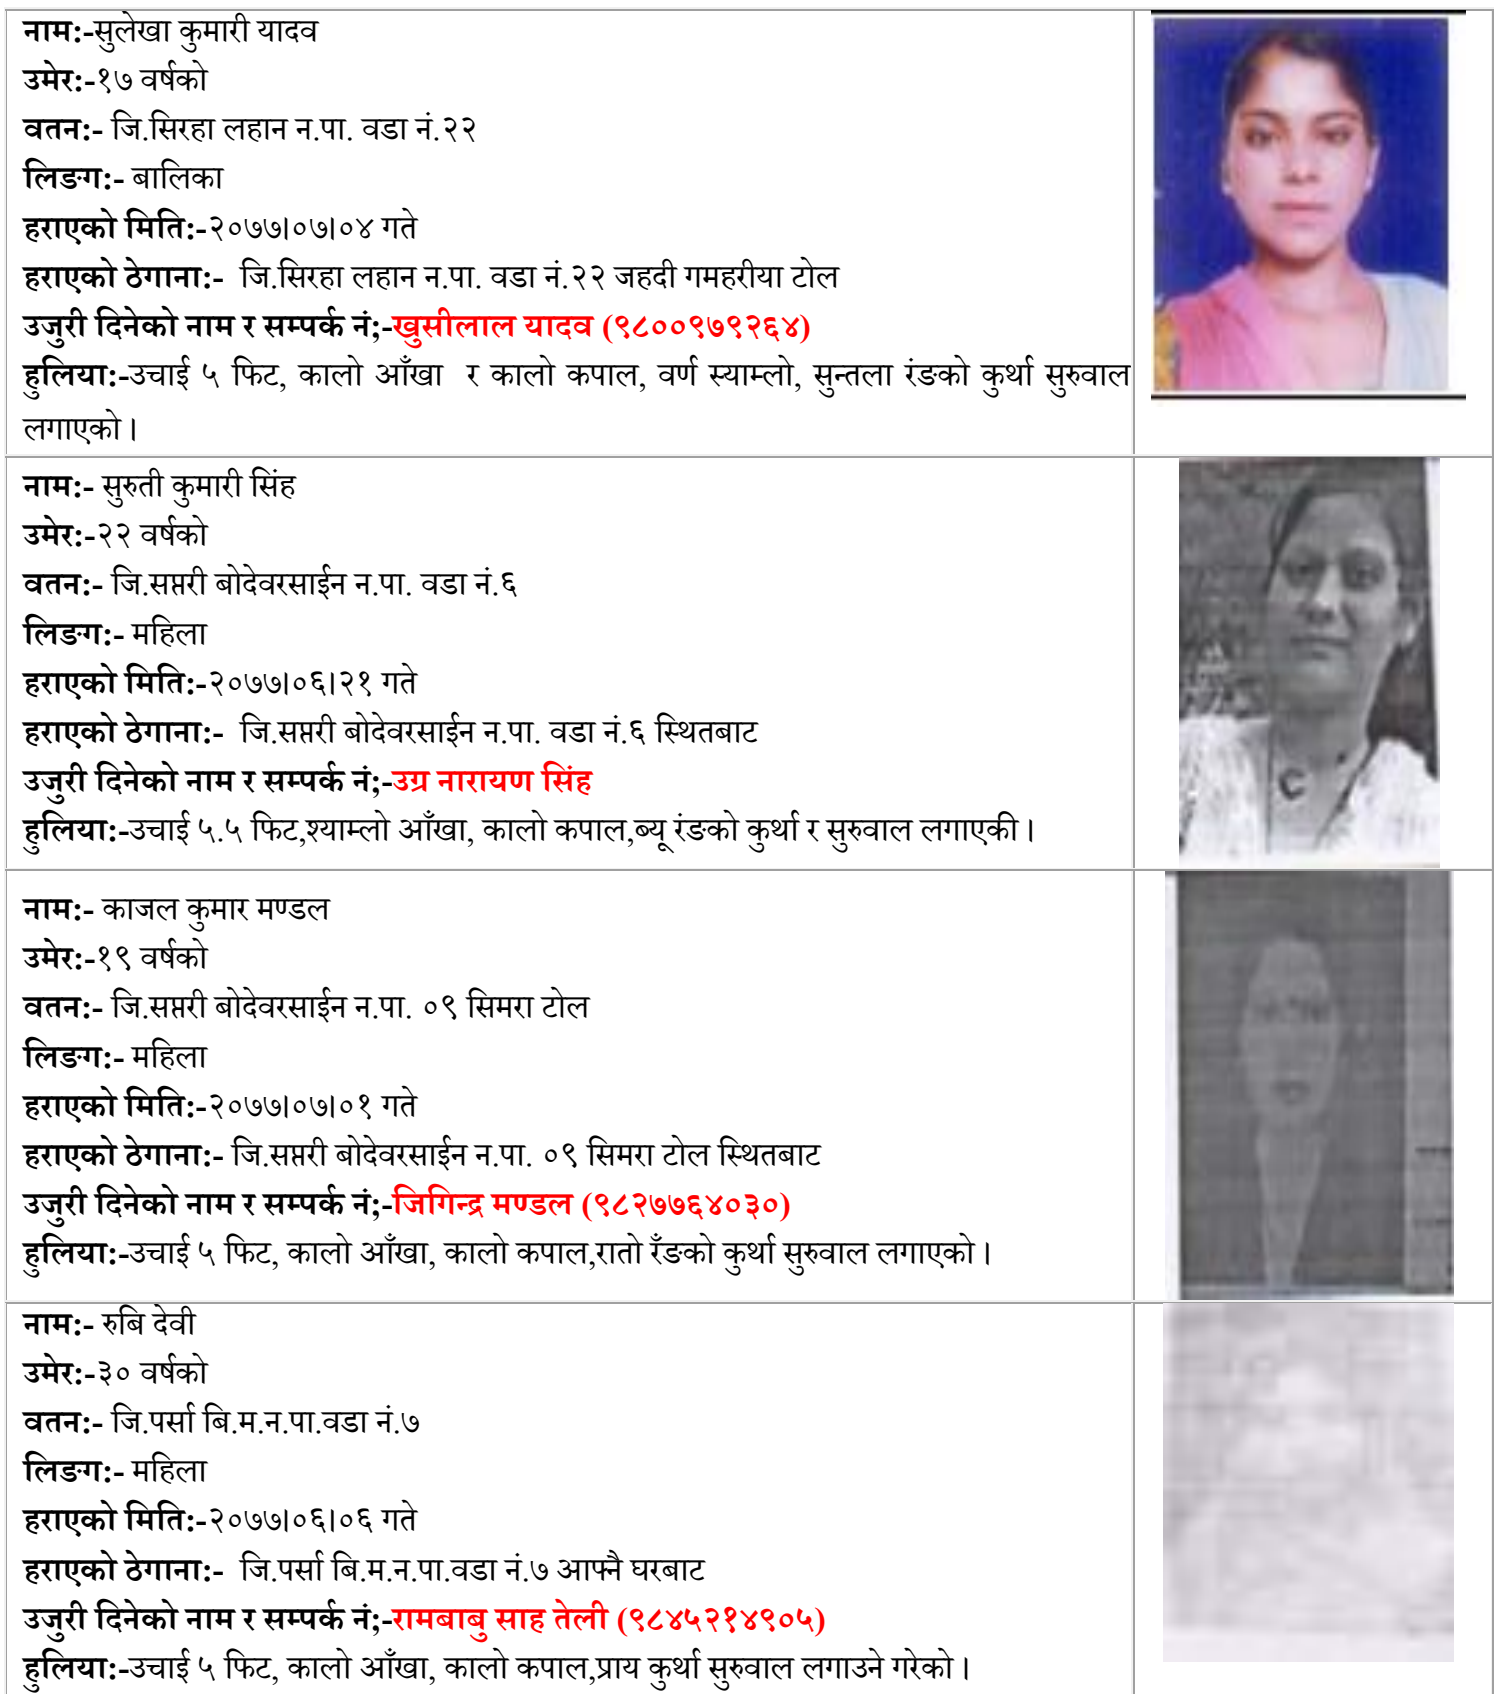 नाम:-सुलेखा कुमारी यादव
उमेर:-१७ वर्षको
वतन:- जि.सिरहा लहान न.पा. वडा नं.२२
लिङग:- बालिका
हराएको मिति:-२०७७।०७।०४ गते
हराएको ठेगाना:- जि.सिरहा लहान न.पा. वडा नं.२२ जहदी गमहरीया टोल
उजुरी दिनेको नाम र सम्पर्क नं;-खुसीलाल यादव (९८००९७९२६४)
हुलिया:-उचाई ५ फिट, कालो आँखा र कालो कपाल, वर्ण स्याम्लो, सुन्तला रंङको कुर्था सुरुवाल
लगाएको।
नाम:- सुरुती कुमारी सिंह
उमेर:-२२ वर्षको
वतन:- जि.सप्तरी बोदेवरसाईन न.पा. वडा नं.६
लिङग:- महिला
हराएको मिति:-२०७७।०६।२१ गते
हराएको ठेगाना:- जि.सप्तरी बोदेवरसाईन न.पा. वडा नं.६ स्थितबाट
उजुरी दिनेको नाम र सम्पर्क नं;-उग्र नारायण सिंह
हुलिया:-उचाई ५.५ फिट,श्याम्लो आँखा, कालो कपाल,ब्यू रंङको कुर्था र सुरुवाल लगाएकी।
नाम:- काजल कुमार मण्डल
उमेर:-१९ वर्षको
वतन:- जि.सप्तरी बोदेवरसाईन न.पा. ०९ सिमरा टोल
लिङग:- महिला
हराएको मिति:-२०७७।०७।०१ गते
हराएको ठेगाना:- जि.सप्तरी बोदेवरसाईन न.पा. ०९ सिमरा टोल स्थितबाट
उजुरी दिनेको नाम र सम्पर्क नं;-जिगिन्द्र मण्डल (९८२७७६४०३०)
हुलिया:-उचाई ५ फिट, कालो आँखा, कालो कपाल,रातो रँङको कुर्था सुरुवाल लगाएको।
नाम:- रुबि देवी
उमेर:-३० वर्षको
वतन:- जि.पर्सा बि.म.न.पा.वडा नं.७
लिङग:- महिला
हराएको मिति:-२०७७।०६।०६ गते
हराएको ठेगाना:- जि.पर्सा बि.म.न.पा.वडा नं.७ आफ्नै घरबाट
उजुरी दिनेको नाम र सम्पर्क नं;-रामबाबु साह तेली (९८४५२१४९०५)
हुलिया:-उचाई ५ फिट, कालो आँखा, कालो कपाल,प्राय कुर्था सुरुवाल लगाउने गरेको।